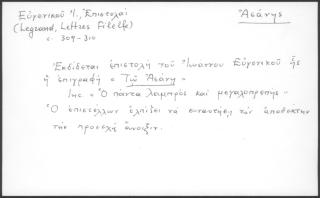 Εὐγενικοῦ Ἰ., Ἐπιστολαί
Ἀσάνης
(Legrand, Lettres Filelfe)
σ. 309-310
Ἐκδίδεται ἐπιστολή τοῦ Ἰωάννου Εὐγενικοῦ ἧς
ἡ ἐπιγραφή « Τῷ Ἀσάνῃ »
Ἰης « Ὁ πάντα λαμπρός καί μεγαλοπρεπής »
Ὁ ἐπιστέλλων ἐλπίζει νά συναντήσῃ τόν ἀποδέκτην
τήν προσεχῆ ἄνοιξιν.